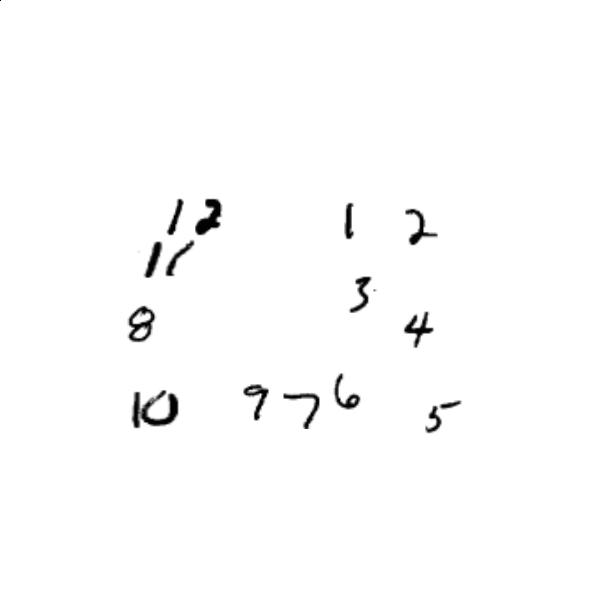 12 1 2
11
3
8 4
10 9 7 6 5